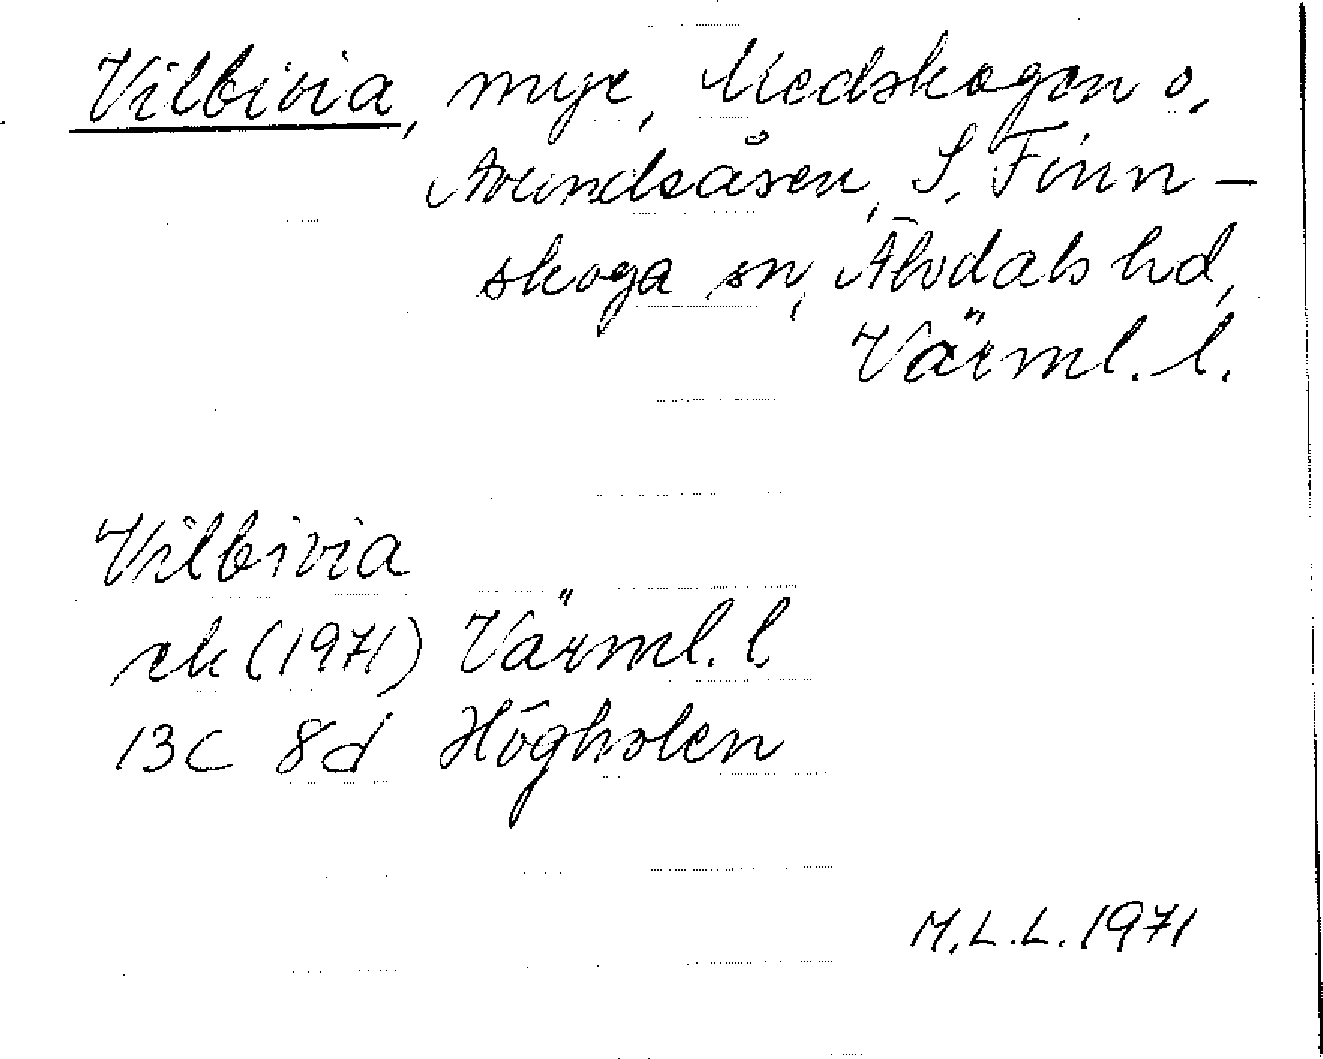 Vilbivia, myr, Medskogen o.
Avundsåsen, S. Finn-
skoga sn, Älvdals hd,
Värml. l.
Vilbivia
ek (1971) Värml. l
13C 8d Högholen
M.L.L. 1971